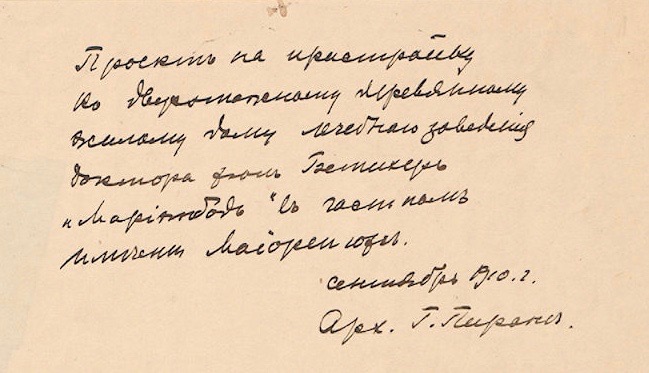 Проектъ на пристройку
ко двухэтажному деревянному
жилому дому лечебнаго заведенія
доктора фонъ Бетихеръ
„Маріенбадъ“ въ частномъ
имѣніи Маіоренгофъ.
сентябрь 1910. г.
Арх. Г. Пиранг.